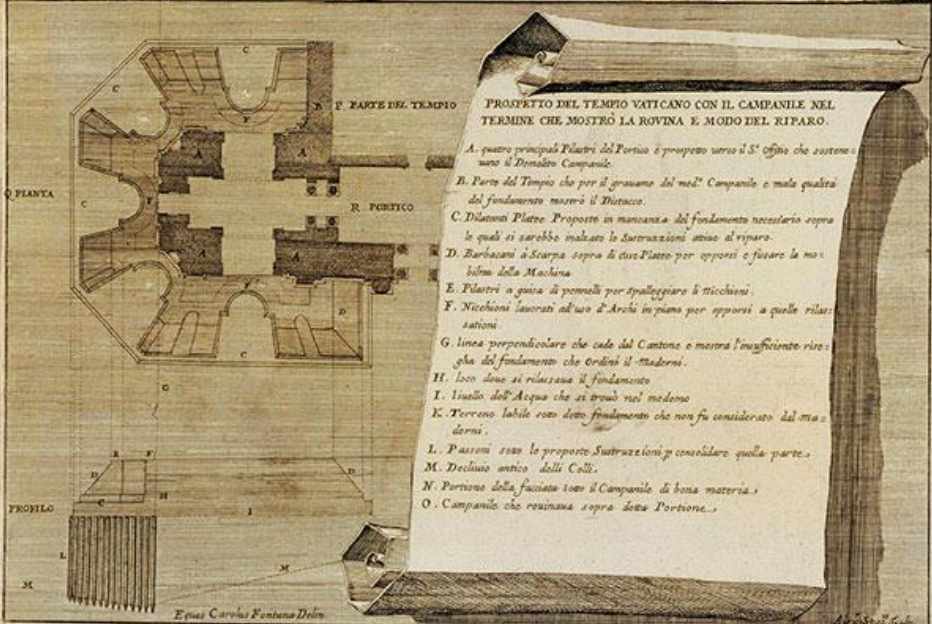 C
C
P. PARTE DEL TEMPIO
B
F
A
A
Q PIANTA
C
F
R. PORTICO
A
A
F
D
C
G
E F
D
D
C
H
PROFILO
I
L
M
M
Eques Carolus Fontana Delin.
PROSPETTO DEL TEMPIO VATICANO CON IL CAMPANILE NEL
TERMINE CHE MOSTRÒ LA ROVINA E MODO DEL RIPARO.
A. quatro principali Pilastri del Portico è prospetto verso il S. Offitio che sostene=
uano il Demolito Campanile.
B. Parte del Tempio che per il grauame del med.º Campanile e mala qualità
del fondamento mostrò il Distacco.
C. Dilatanti Platee Proposte in mancanza del fondamento necessario sopra
le quali si sarebbe inalzato le Sustruzzioni attiue al riparo.
D. Barbacani à Scarpa sopra di esse Platee per opporsi e fusare la mo=
bilita della Machina
E. Pilastri a guisa di pennelli per spalleggiare li Nicchioni.
F. Nicchioni lauorati ad'uso d'Archi in piano per opporsi a quelle rilas=
sationi.
G. linea perpendicolare che cade dal Cantone e mostra l'insufficiente rise=
gha del fondamento che Ordinò il Maderni.
H. loco doue si rilassaua il fondamento
I. liuello dell'Acqua che si trouò nel medemo
K. Terreno labile soto detto fondamento che non fu considerato dal Ma=
derni.
L. Passoni soto le proposte Sustruzzioni p consolidare quella parte.
M. Decliuio antico delli Colli.
N. Portione della facciata soto il Campanile di bona materia.
O. Campanile che rouinaua sopra detta Portione.